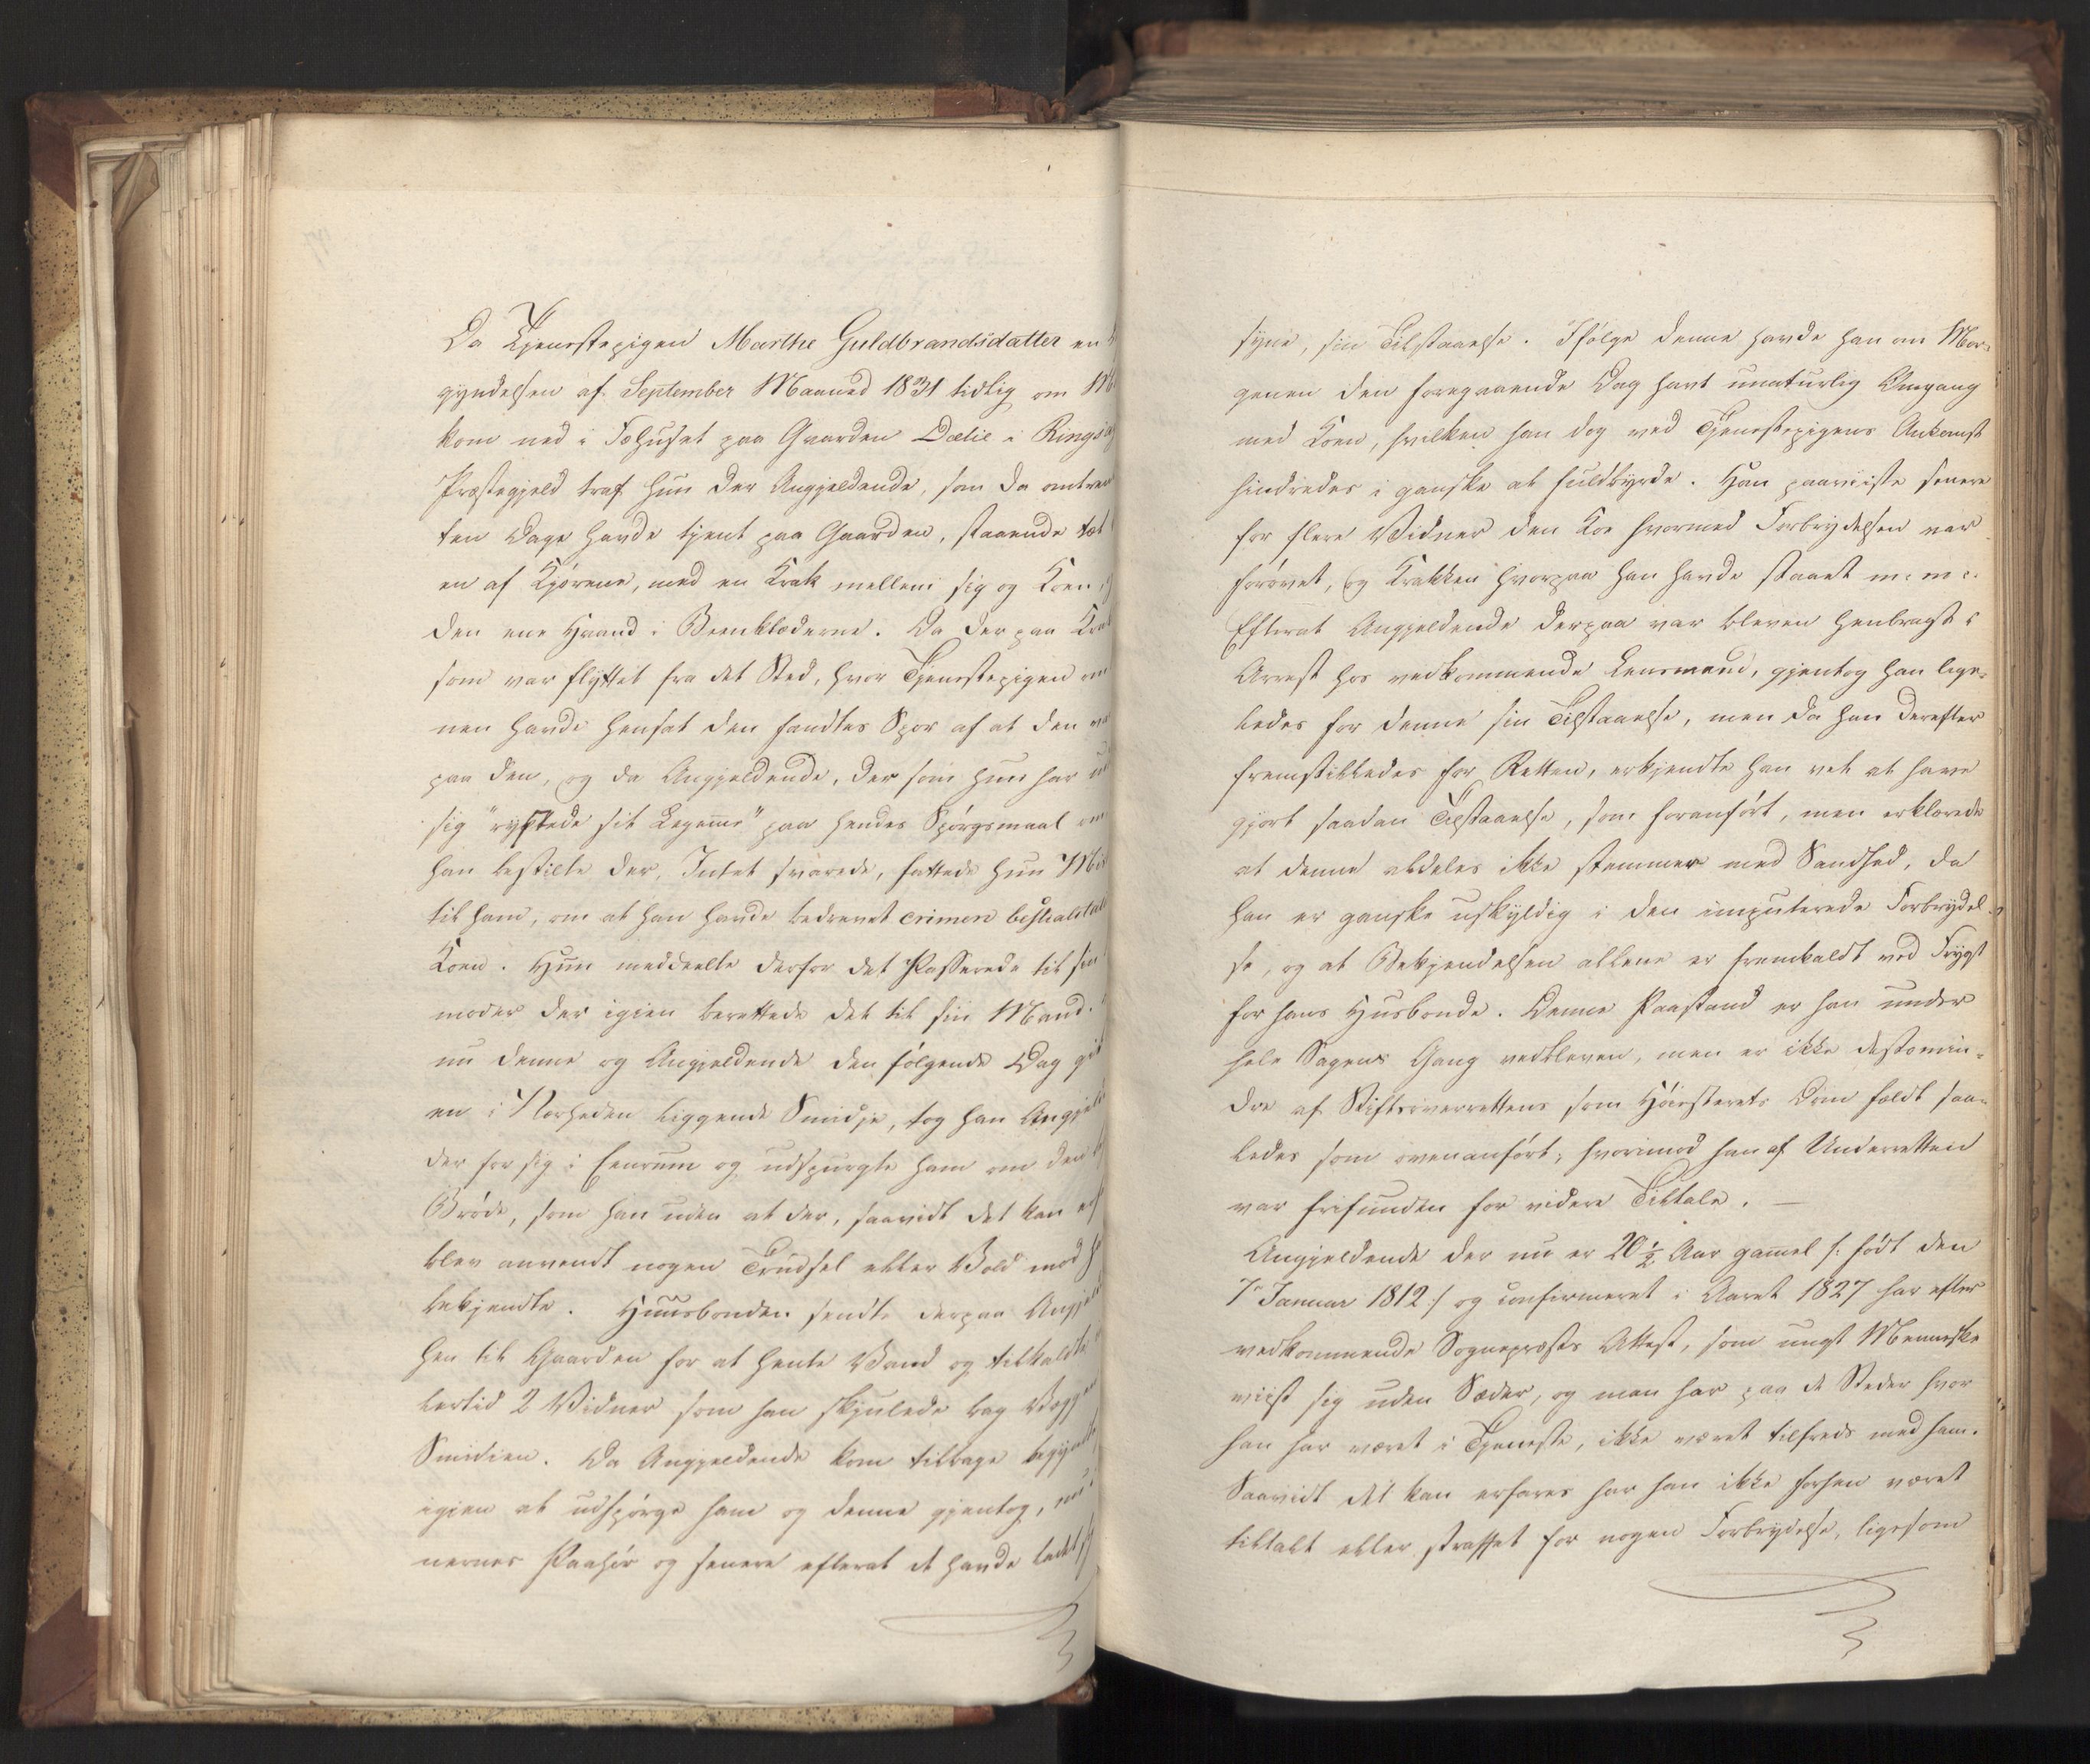 Da Tjenestepigen Marthe Guldbrandsdatter en
gyndelsen af September Maaned 1831 tidlig om
kom ned i Fæhuset paa Gaarden Dælie i Rings
Præstegjeld traf hun der Angjeldende, som da omtren
ten Dage havde tjent paa Gaarden, staaende tæt
en af Kjørene, med en Krak mellem sig og Koen,
den ene Haand i Beenklæderne. Da der paa Krak
som var flyttet fra det Sted, hvor Tjenestepigen om
nen havde hensat den fandtes Spor af at den
paa den, og da Angjeldende, der som hun har
sig "rystede sit Legeme" paa hendes Spørgsmaal om
han bestilte der, Intet svarede, fattede hun Mis
til ham, om at han havde bedrevet crimen bestialitat
Koen. Hun meddeelte derfor det Passerede til sin
moder der igien berettede det til sin Mand.
nu denne og Angjeldende den følgende Dag
en i Nærheden liggende Smidje, tog han Angjeld
der for sig i Eenrum og udspurgte ham om den
Brøde, som han uden at der, saavidt det kan
blev anvendt nogen Trudsel eller Vold mod
bekjendte. Huusbonden sendte derpaa Angjeld
hen til Gaarden for at hente Vand og tilkaldte
lertid 2 Vidner som han skjulede bag Væggen
Smidien. Da Angjeldende kom tilbage begyndte
igien at udspørge ham og denne gjentog,
nernes Paahør og senere efterat de havde ladet
syne, sin Tilstaaelse. Ifølge denne havde han om Mor-
genen den foregaaende Dag havt unaturlig Omgang
med Koen, hvilken han dog ved Tjenestepigens Ankomst
hindredes i ganske at fuldbyrde. Han paaviiste senere
for flere Vidner den Koe hvormed Forbrydelsen var
forøvet, og Krakken hvorpaa han havde staaet m: m:
Efterat Angjeldende derpaa var bleven henbragt i
Arrest hos vedkommende Lensmand, gjentog han lige-
ledes for denne sin Tilstaaelse, men da han derefter
fremstilledes for Retten, erkjendte han vel at have
gjort saadan Tilstaaelse, som foranført, men erklærede
at denne aldeles ikke stemmer med Sandhed, da
han er ganske uskyldig i den imputerede Forbrydel-
se, og at Bekjendelsen allene er fremkaldt ved Frygt
for hans Husbonde. Denne Paastand er han under
hele Sagens Gang vedbleven, men er ikke destomin-
dre af Stiftsoverrettens som Høiesterets Dom fældt saa-
ledes som ovenanført, hvorimod han af Underretten
var frifunden for videre Tiltale. —
Angjeldende der nu er 20½ Aar gammel /: født den
7de Januar 1812 :/ og confirmeret i Aaret 1827 har efter
vedkommende Sognepræsts Attest, som ungt Menneske
viist sig uden Sæder, og man har paa de Steder hvor
han har været i Tjeneste, ikke været tilfreds med ham.
Saavidt det kan erfares har han ikke forhen været
tiltalt eller straffet for nogen Forbrydelse, ligesom